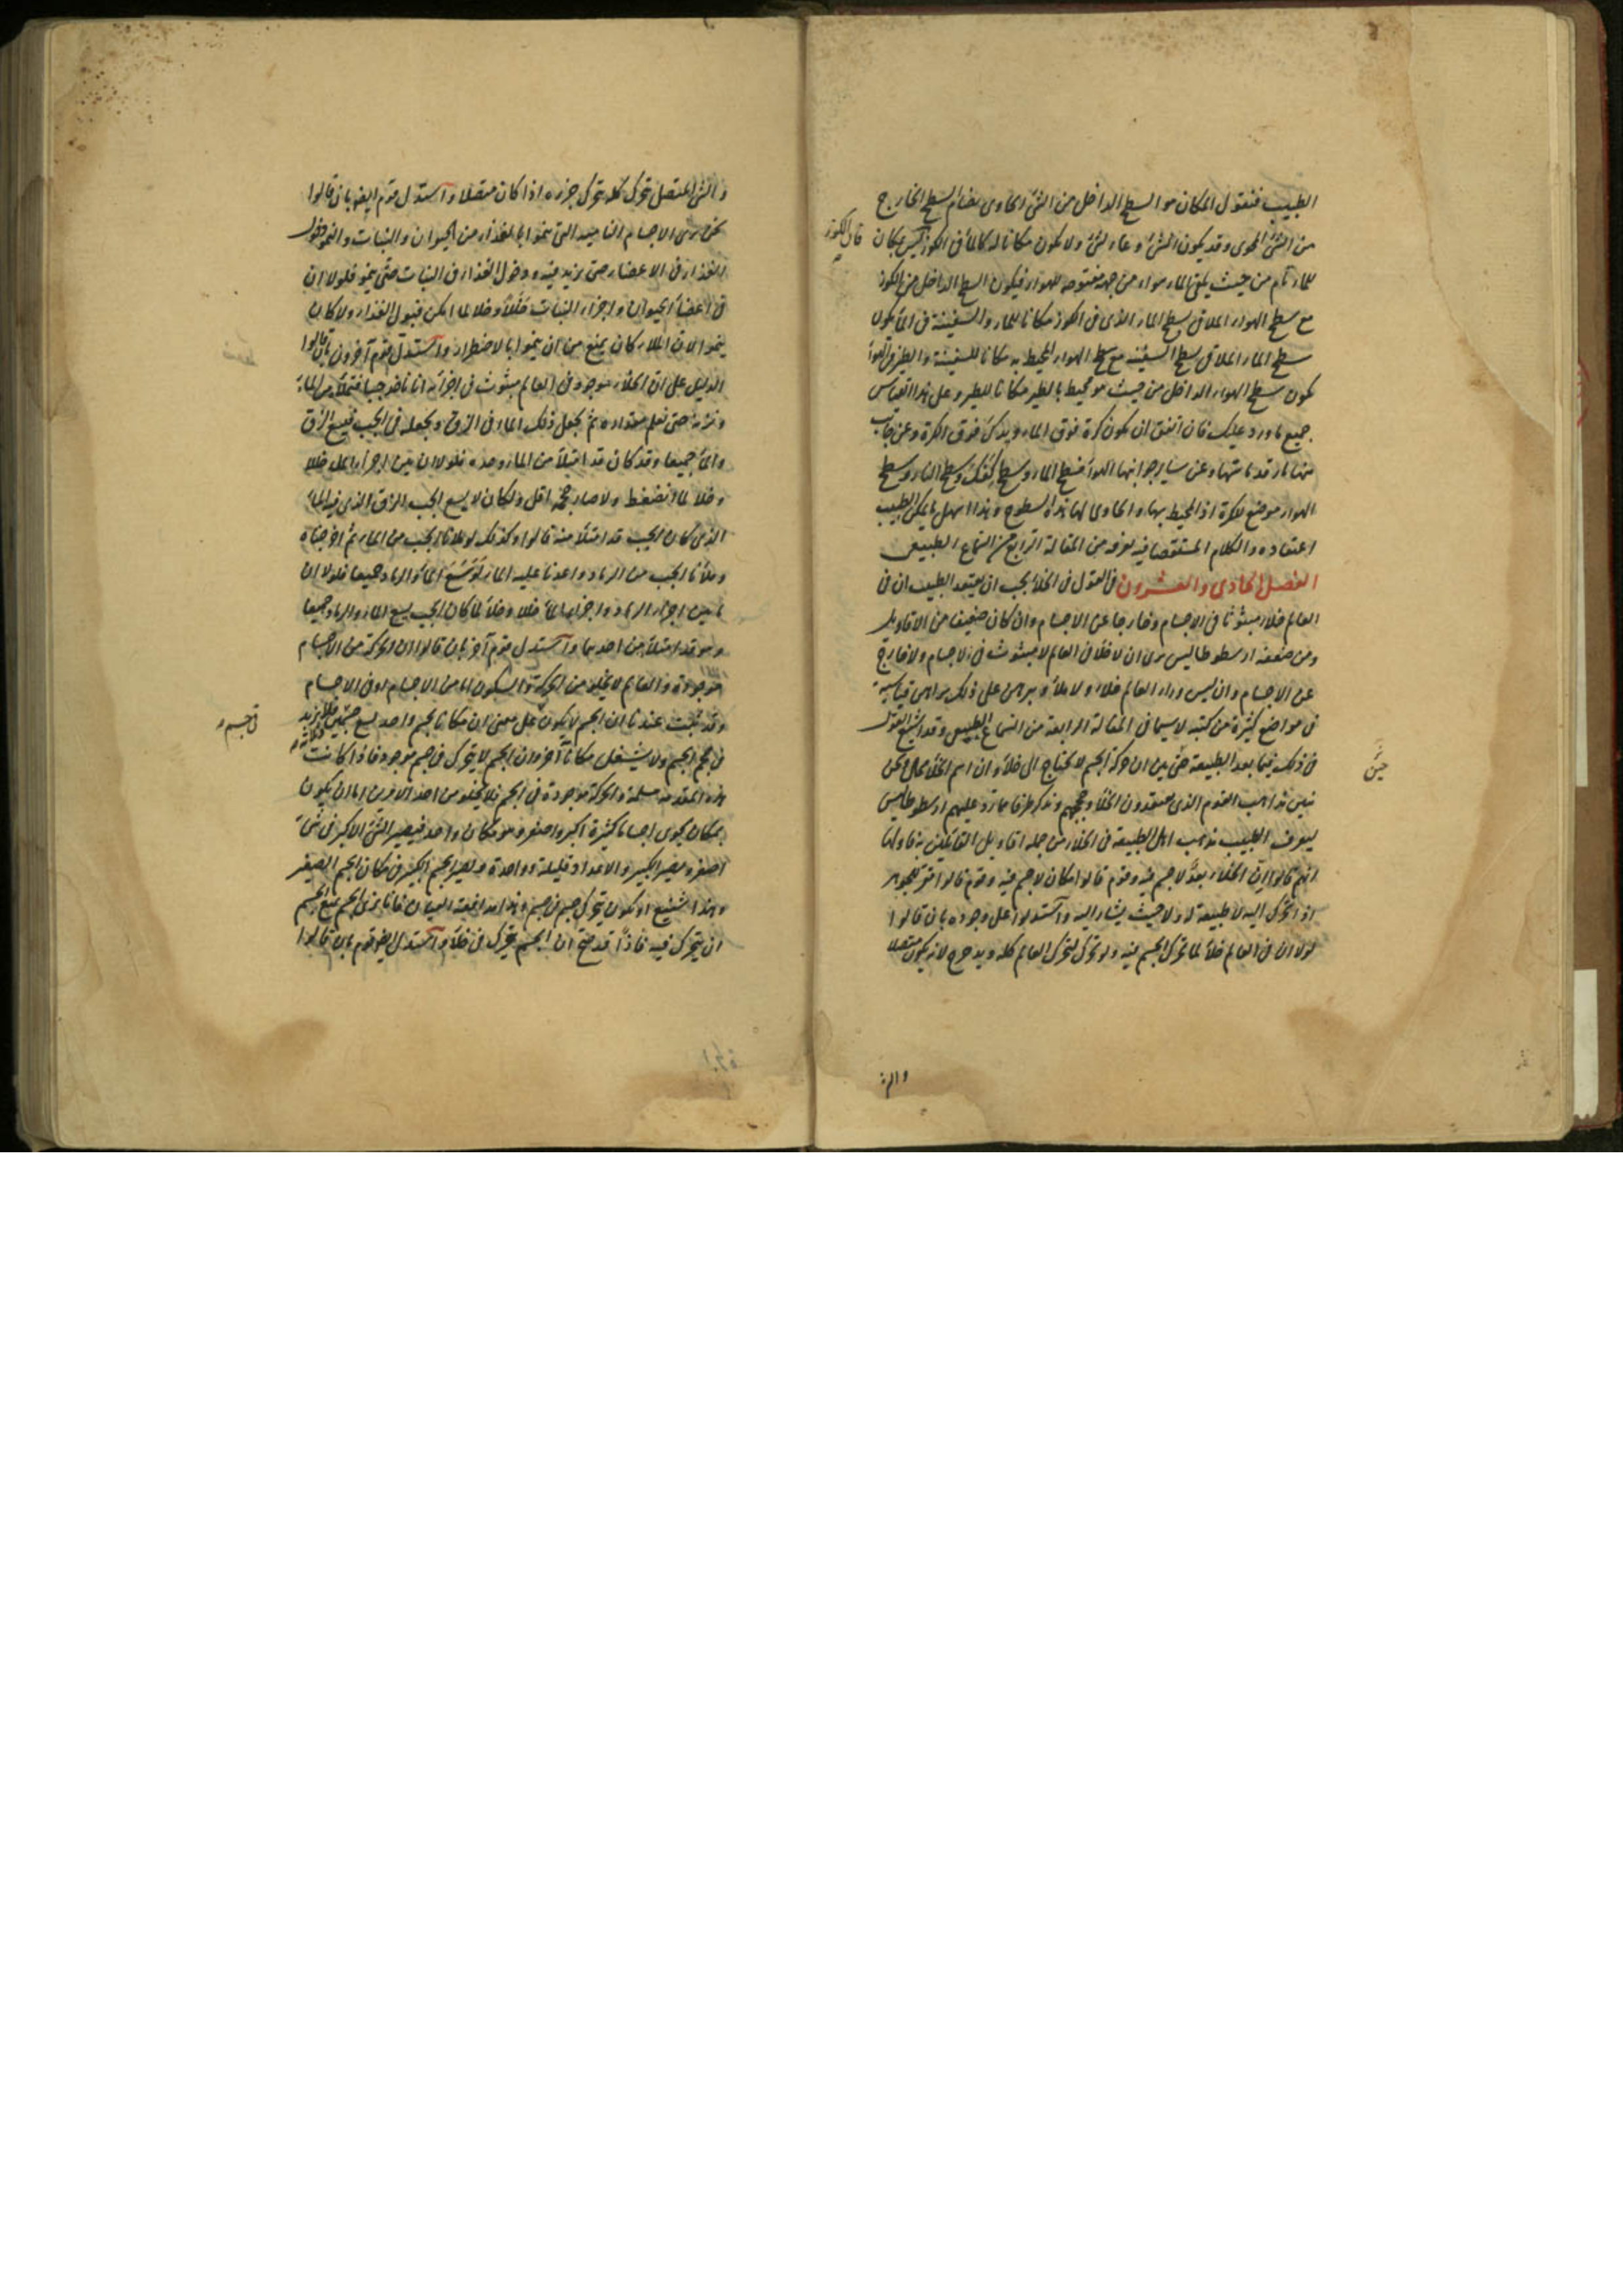 الطبيب فنقول المكان هو السطح الداخل من الشئ الحاوى بضام لسطح الخارج
من الشئ المحوى وقد يكون الشئ وعاء لشئ ولا يكون مكانا له كالماء فى الكوز ليس بمكان
فان الكوز
للماء تام من حيث يلقى الماء هواء من جهة مفتوحه للهواء فيكون السطح الداخل من الكوز
مع سطح الهواء الملاقى لسطح الماء الذى فى الكوز مكانا للماء والسفينة فى الماء يكون
سطح الماء الملاقى لسطح السفينة مع سطح الهواء المحيط به مكانا للسفينة والطير فى الهواء
يكون سطح الهواء الداخل من حيث هو محيط بالطير مكانا للطير وعلى هذا القياس
جميع ما ورد عليك فان اتفق ان يكون كرة فوق الماء وفوق الكرة وعن جانب
منها نار قد ماستها وعن ساير جوانبها الهواء فسطح الماء وسطح وسطح النار وسطح
الهواء موضع للكرة اذ المحيط بها والحاوى لها هذه السطوح وهذا اسهل ما يمكن الطبيب
اعتقاده والكلام المستقصا فيه يعرفه من المقالة الرابعة من السماع الطبيعى
الفصل الحادى والعشرون فى القول فى الخلاء يجب ان يعتقد الطبيب ان فى
العالم خلاء مبثوثا فى الاجسام وخارجا عن الاجسام وان كان ضعيفا من الاقاويل
ومن ضعفه ارسطوطاليس يرى ان لا خلاء فى العالم لا مبثوث فى الاجسام ولا خارج
عن الاجسام وان ليس وراء العالم خلاء ولا ملاء وبرهن على ذلك براهين قياسية
فى مواضع كثيرة من كتبه لا سيما فى المقالة الرابعة من السماع الطبيعى وقد اشبع القول
فى ذلك فيما بعد الطبيعة حتى بين ان حركة الجسم لا تحتاج الى خلاء وان اسم الخلاء محال ونحن
حتى
نبين مذاهب القوم الذى يعتقدون الخلاء وحججهم ونذكر طرفا مما رد عليهم ارسطوطاليس
ليعرف الطبيب مذهب اهل الطبيعة فى الخلاء من جملة اقاويل القائلين به فاولها
انهم قالوا ان الخلاء بعد لا جسم فيه وقوم قالوا مكان لا جسم فيه وقوم قالوا هو الجوهر
اذا تحرك اليه لا طبيعة له ولا حيث يشار اليه واستدلوا على وجوده بان قالوا
لولا ان فى العالم خلاء لما تحرك الجسم فيه ولو تحرك لتحرك العالم كله ويدحرج لانه يكون متصلا
والشئ
والشئ المتصل تحرك كله بتحرك جزءه اذا كان متصلا واستدل قوم ايضا بان قالوا
نحن نرى الاجسام النامية التى تنموا بالغذاء من الحيوان والنبات والنمو دخول
الغذاء فى الاعضاء حتى يزيد فيه ودخول الغذاء فى النبات حتى ينمو فلولا ان
فى اعضاء الحيوان واجزاء النبات خلاء وخلا لما امكن قبول الغذاء ولا كان
ينموا لان الملاء كان يمنع من ان ينموا بالاضطرار واستدل قوم آخرون بان قالوا
الدليل على ان الخلاء موجود فى العالم مبثوث فى اجزائه انا ناخذ جبا فنملأه من الماء
ونزنه حتى نعلم مقداره ثم نجعل ذلك الماء فى الزق ونجعله فى الجب فيسع الزق
والماء جميعا وقد كان قد امتلأ من الماء وحده فلولا ان بين اجزاء الماء خللا
وخلاء لما انضغط ولا صار حجمه اقل ولكان لا يسع الجب الزق الذى فيه الماء
الذى كان الجب قد امتلأ منه قالوا وكذلك لو ملأنا الجب من الماء ثم اخرجناه
وملأنا الجب من الرماد واعدنا عليه الماء لوسع الماء والرماد جميعا فلولا ان
ما بين اجزاء الرماد واجزاء الماء خللا وخلاء لما كان الجب يسع الماء والرماد جميعا
وهو قد امتلأ من احدهما واستدل قوم آخر بان قالوا ان الحركة من الاجسام
موجودة والعالم لا يخلو من الحركة والسكون اما من الاجسام او فى الاجسام
وقد ثبت عندنا ان الجسم لا يكون على معنى ان مكانا لجسم واحد يسع جسمين فلا يزيد
فى جسم
فى حجم الجسم ولا يشغل مكانا آخر وان الجسم لا يتحرك فى جسم موجود فاذا كانت
هذه المقدمة مسلمة والحركة موجودة فى الجسم فلا يخلو من احد الامرين اما ان يكون
بمكان يحوى اجساما كثيرة اكبر واصغر وهو مكان واحد فيصير الشئ الاكبر فى شئ
اصغر ويصير الكبير والاعداد قليلة وواحدة ويصير الجسم الكبير فى مكان الجسم الصغير
وهذا شنيع او يكون يتحرك جسم فى جسم وهذا مدافعة العيان فانا نرى الجسم يمنع الجسم
ان يتحرك فيه فاذا قد صح ان الجسم يتحرك فى خلاء واستدل ايضا قوم بان قالوا